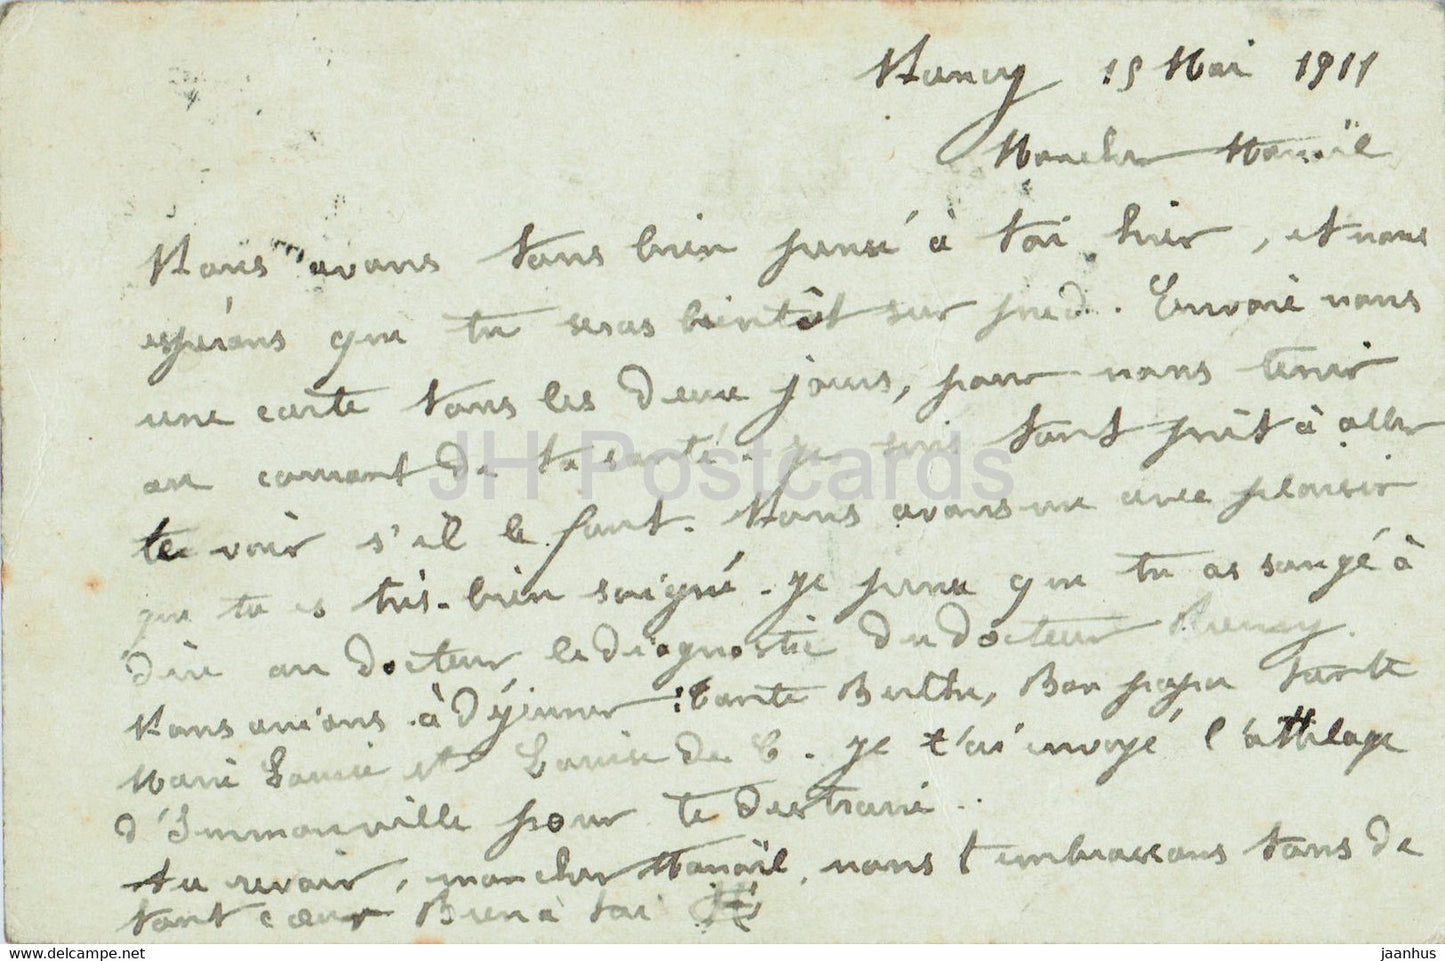 Nancy 15 Mai 1911
Mon cher Manoïl
Nous avons tous bien pensé à toi hier, et nous
espérons que tu seras bientôt sur pied. Envoie nous
une carte tous les deux jours, pour nous tenir
au courant de ta santé. Je suis tout prêt à aller
te voir s'il le faut. Nous avons vu avec plaisir
que tu es très bien soigné. Je pense que tu as songé à
dire au docteur le diagnostic du docteur
Nous avions à déjeuner Tante Berthe, Bon papa Tante
Marie Louise et Louise de C. Je t'ai envoyé l'attelage
d'Immonville pour te distraire.
Au revoir, mon cher Manoïl, nous t'embrassons tous de
tout cœur Bien à toi
JH Postcards
jaanhus